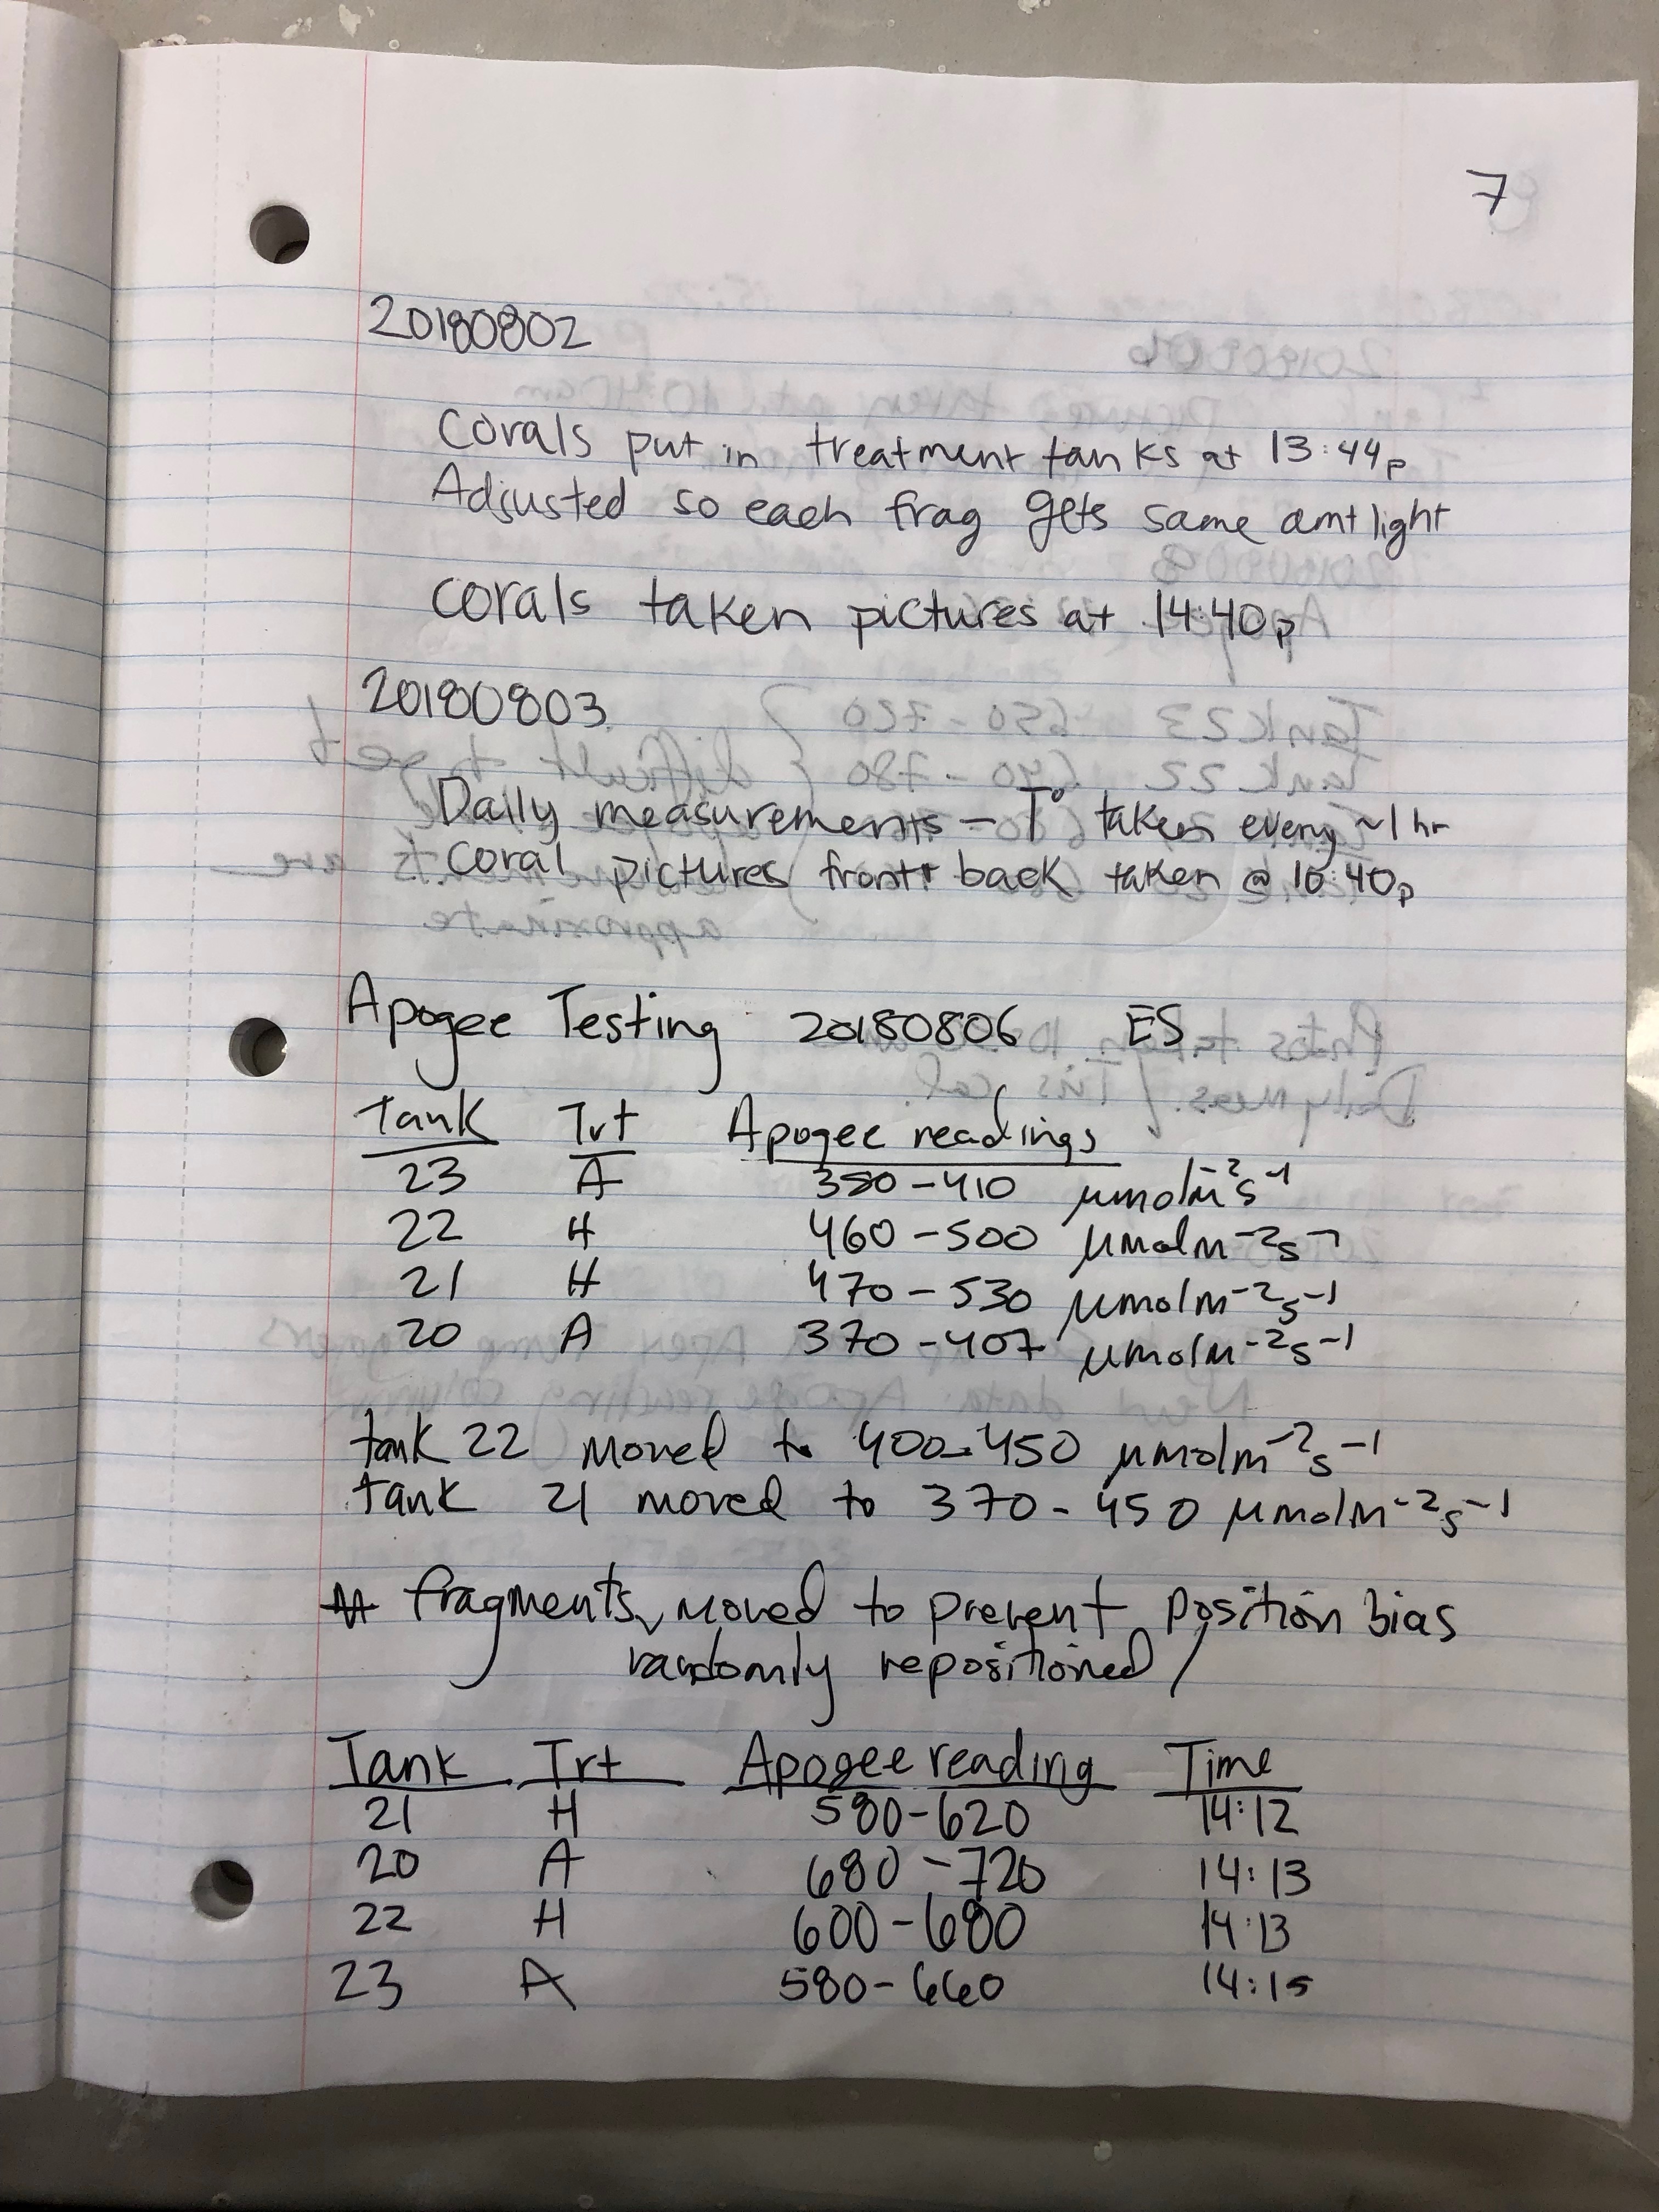 7
20180802
Corals put in treatment tanks at 13:44p
Adjusted so each frag gets same amt light
corals taken pictures at 14:40p
20180803
Daily measurements – T° taken every ~1 hr
coral pictures front + back taken @ 10:40p
Apogee Testing 20180806 ES
Tank Trt Apogee readings
23 A 380–410 μmolm⁻²s⁻¹
22 H 460–500 μmolm⁻²s⁻¹
21 H 470–530 μmolm⁻²s⁻¹
20 A 370–407 μmolm⁻²s⁻¹
tank 22 moved to 400-450 μmolm⁻²s⁻¹
tank 21 moved to 370-450 μmolm⁻²s⁻¹
fragments moved to prevent position bias
randomly repositioned /
Tank Trt Apogee reading Time
21 H 580–620 14:12
20 A 680–720 14:13
22 H 600–680 14:13
23 A 580–660 14:15